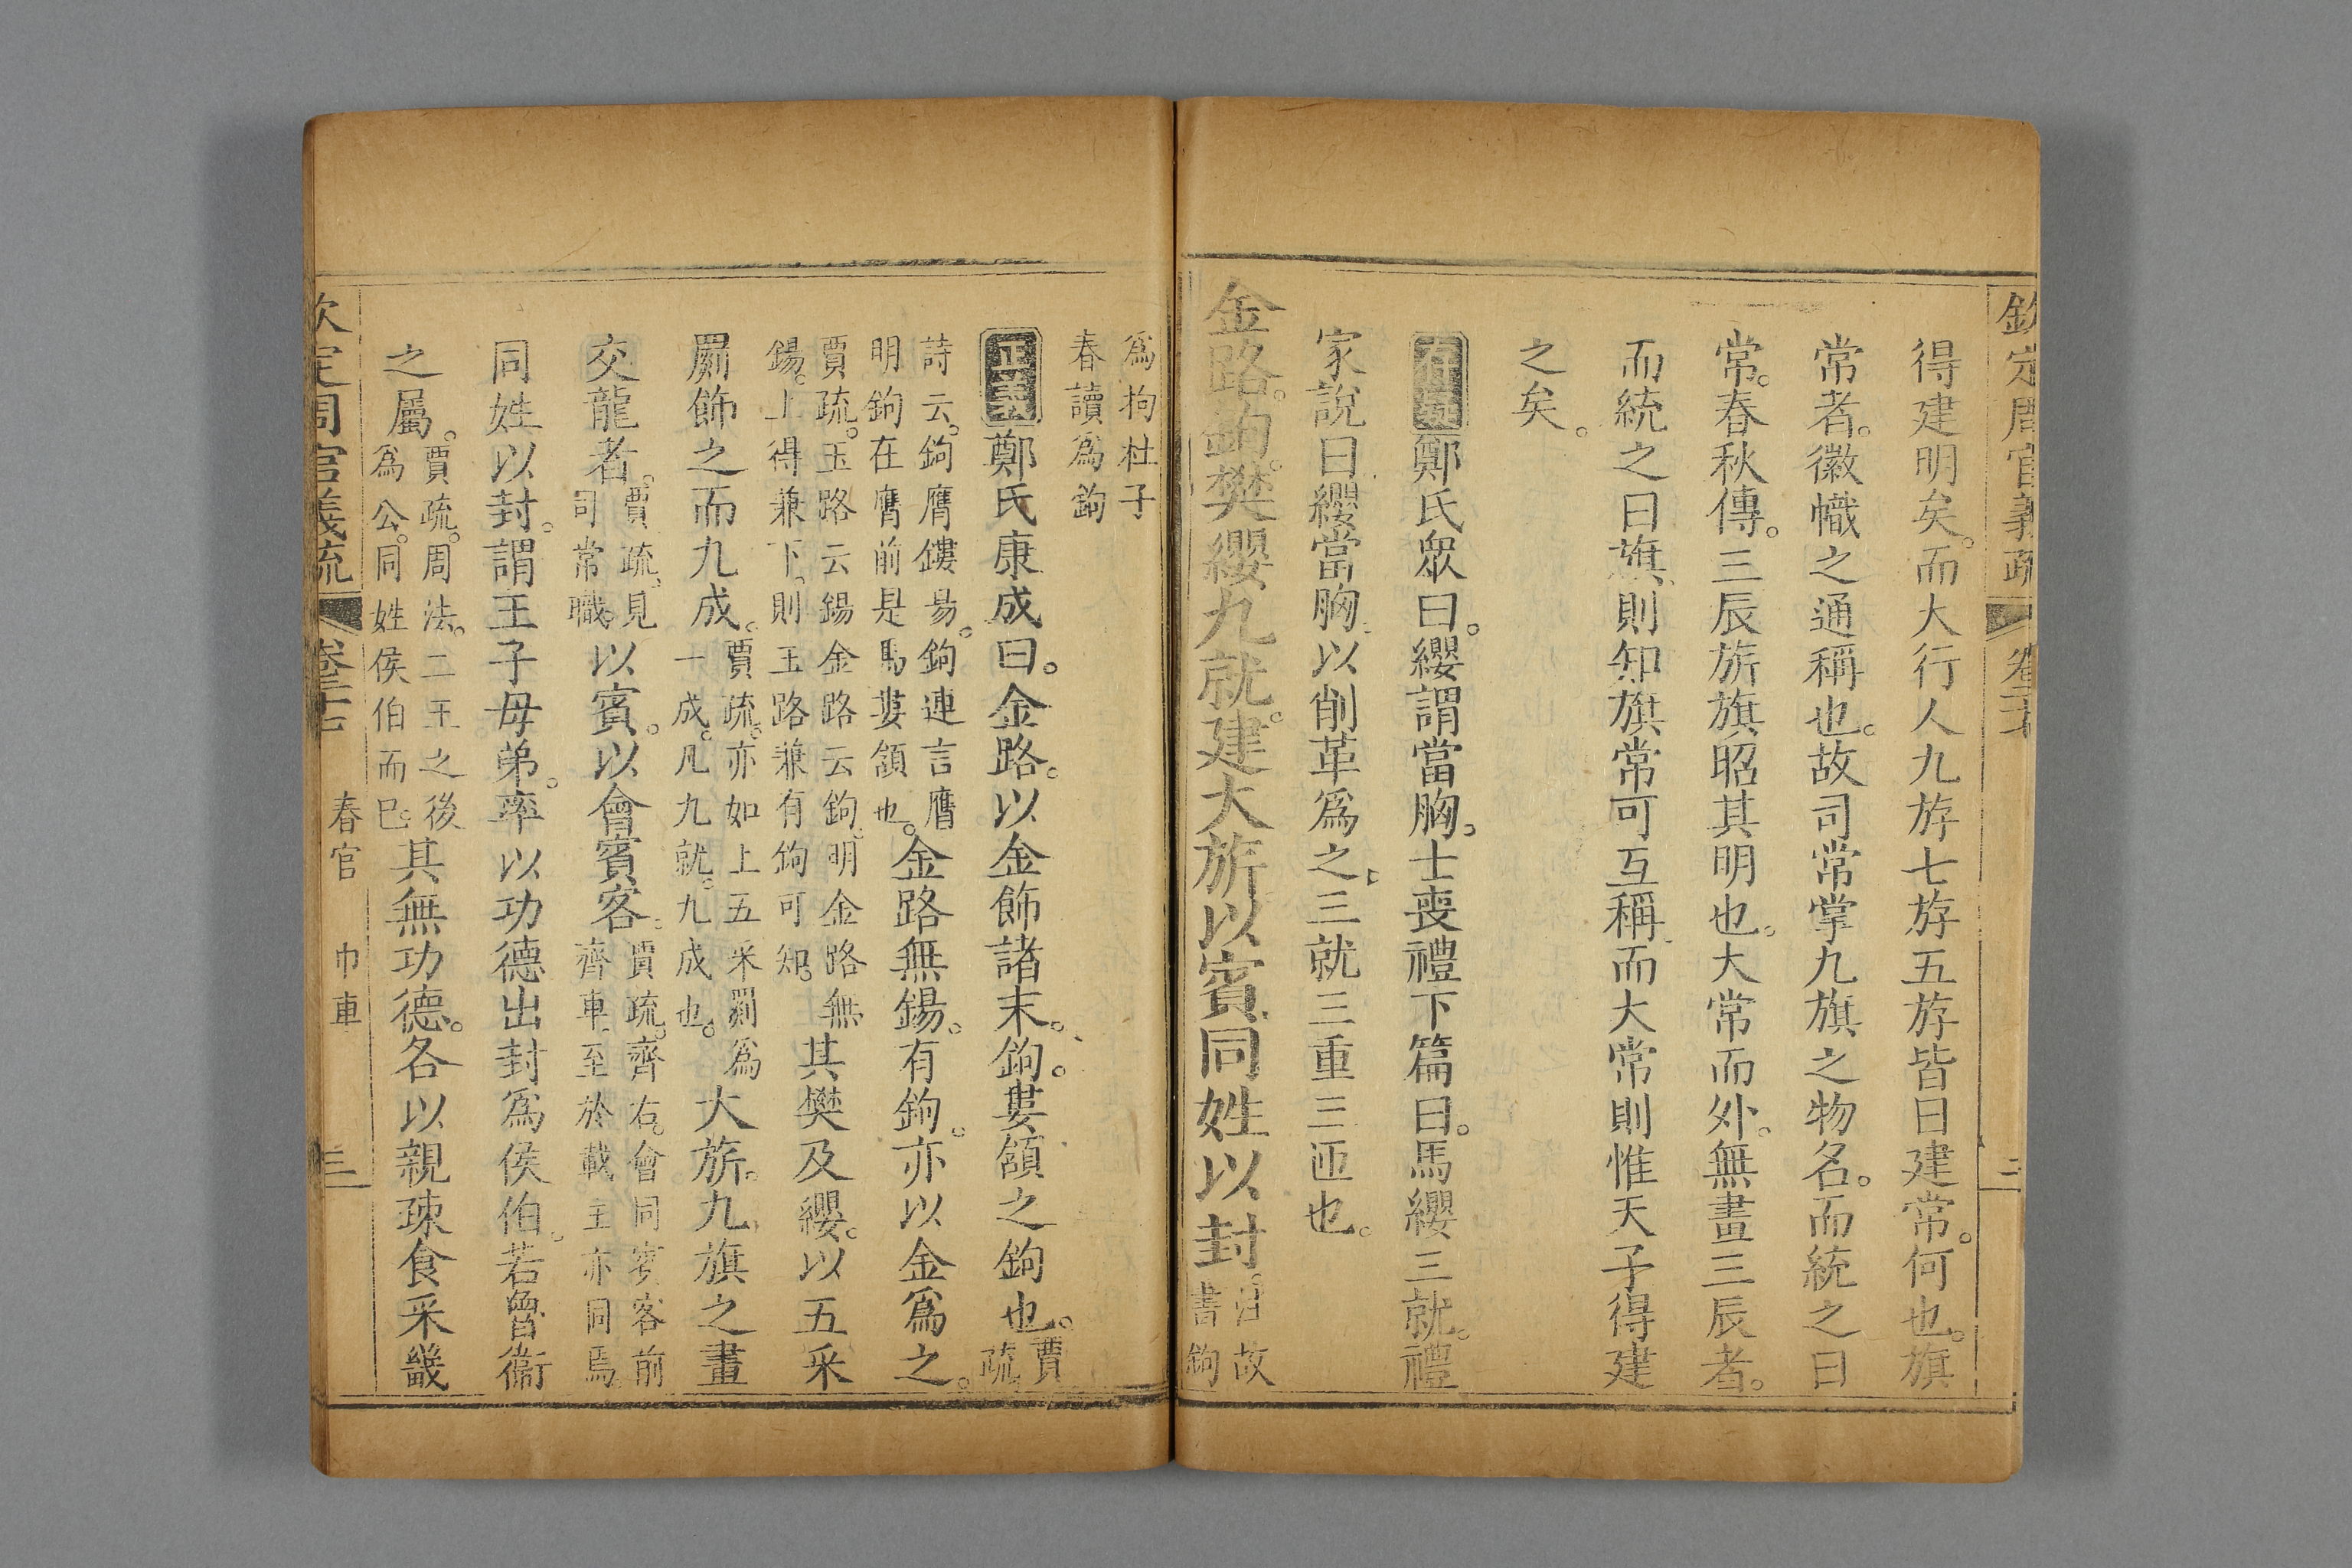 欽定周官義疏 卷二十七 二
得建明矣。而大行人九斿七斿五斿皆曰建常。何也。旗
常者。徽幟之通稱也。故司常掌九旗之物名。而統之曰
常。春秋傳。三辰旂旗昭其明也。大常而外。無畫三辰者。
而統之曰旗、則知旗常可互稱、而大常則惟天子得建
之矣。
存疑鄭氏眾曰。纓謂當胸。士喪禮下篇曰。馬纓三就。禮
家說曰纓當胸、以削革為之、三就三重三匝也。
金路。鉤。樊纓九就。建大旂以賓同姓以封。注故書鉤
為拘杜子春讀為鉤
正義鄭氏康成曰。金路。以金飾諸末。鉤。婁頷之鉤也。賈疏。
詩云。鉤膺鏤鍚。鉤連言膺明鉤在膺前是馬婁頷也。金路無鍚。有鉤。亦以金為之。
賈疏。玉路云鍚金路云鉤。明金路無鍚。上得兼下。則玉路兼有鉤可知。其樊及纓。以五采
罽飾之而九成。賈疏。亦如上五采罽為一成。凡九就。九成也。大旂。九旗之畫
交龍者。賈疏、見司常職。以賓。以會賓客。賈疏。齊右。會同賓客前齊車、至於載主亦同焉
同姓以封。謂王子母弟。率以功德出封為侯伯。若魯衞
之屬。賈疏。周法。二王之後為公。同姓侯伯而已。其無功德。各以親疎食采畿
欽定周官義疏 卷二十七 春官 巾車 三